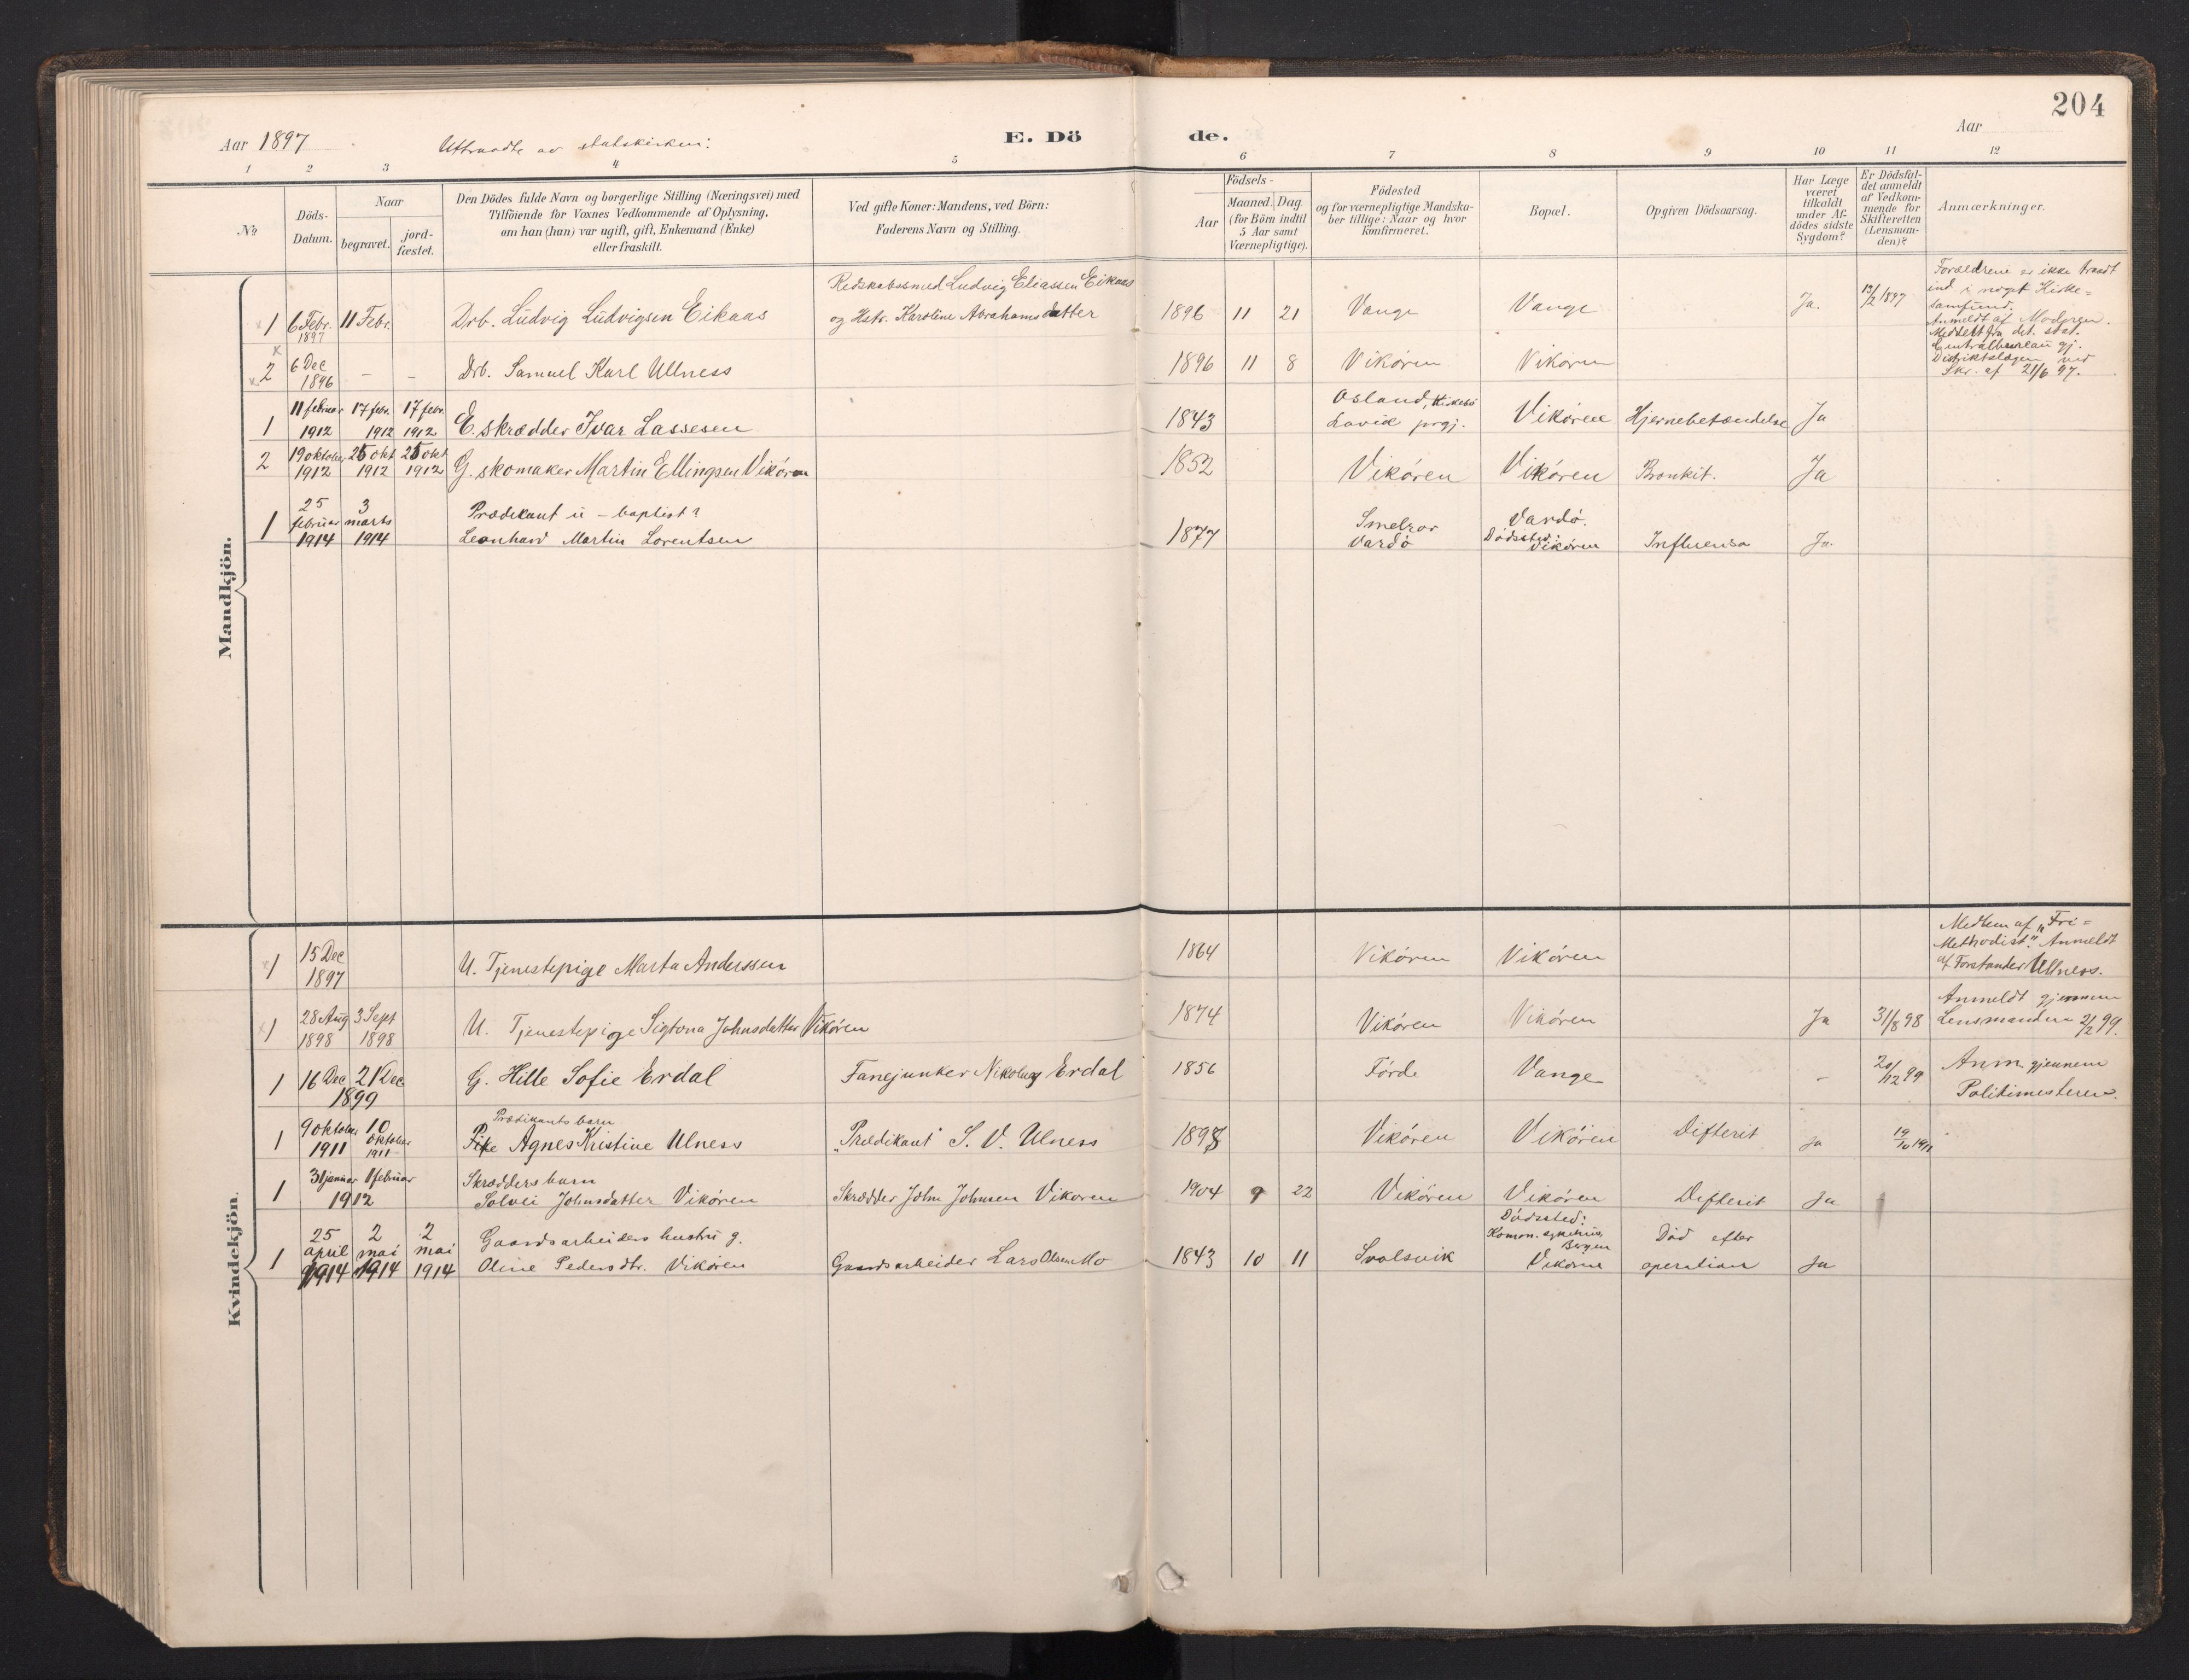 204
Aar 1897
Uttraadte av statskirken:
E. Dö
de.
Aar
1 2 3 4 5 6 7 8 9 10 11 12
No
Döds-
Datum.
Naar
begravet.
jord-
fæstet.
Den Dödes fulde Navn og borgerlige Stilling (Næringsvei) med
Tilföiende for Voxnes Vedkommende af Oplysning,
om han (hun) var ugift, gift, Enkemand (Enke)
eller fraskilt.
Ved gifte Koner: Mandens, ved Börn:
Faderens Navn og Stilling.
Födsels-
Aar
Maaned. Dag
(for Börn indtil
5 Aar samt
Værnepligtige).
Födested
og for værnepligtige Mandska-
ber tillige: Naar og hvor
konfirmeret.
Bopæl.
Opgiven Dödsaarsag.
Har Læge
været
tilkaldt
under Af-
dödes sidste
Sygdom?
Er Dödsfal-
det anmeldt
af Vedkom-
mende for
Skifteretten
(Lensman-
den)?
Anmærkninger.
Mandkjön.
1 6 Febr. 1897 11 Febr.
Drb. Ludvig Ludvigsen Eikaas
Redskabssmed Ludvig Eliassen Eikaas
og Hstr. Karoline Abrahamsdatter
1896 11 21 Vange Vange Ja. 12/2 1897
Forældrene er ikke traadt
ind i noget Kirke=
samfund.
Anmeldt af Moderen.
2 6 Dec 1896 – –
Drb. Samuel Karl Ullness
1896 11 8 Vikören Vikören
Meddelt fra det. stat.
Centralbureau gj.
Distriktslægen ved
Skr. af 21/6 97.
1 11 februar 1912 17 febr. 1912 17 febr. 1912
E. skrædder Ivar Lassesen
1843 Osland, Kirkebö
Lavik prgj. Vikören Hjernebetændelse Ja
2 19 oktober 1912 25 okt 1912 25 okt 1912
G. skomaker Martin Ellingsen Vikören
1852 Vikören Vikören Bronkit. Ja
1 25 februar 1914 3 marts 1914
Prædikant u – baptist?
Leonhard Martin Lorentsen
1877 Smelror
Vardö Vardö.
Dödssted:
Vikören Influensa Ja.
Kvindekjön.
1 15 Dec 1897
U. Tjenestepige Marta Anderssen
1864 Vikören Vikören
Medlem af „Fri=
Methodist." Anmeldt
af Forstander Ullness.
1 28 Aug 1898 3 Sept 1898
U. Tjenestepige Sigtona Johnsdatter Vikören
1874 Vikören Vikören Ja 31/8 98
Anmeldt gjennem
Lensmanden 2/2 99.
1 16 Dec 21 Dec 1899
G. Hille Sofie Erdal
Fanejunker Nikolay Erdal
1856 Förde Vange – 20/12 99
Anm gjennem
Politimesteren.
1 9 oktober 1911 10 oktober 1911
Prædikants barn
Pike Agnes Kristine Ulness
„Prædikant" S. V. Ulness
1898 Vikören Vikören Difterit ja 19/10 1911
1 31 januar 1 februar 1912
Skrædders barn
Solvei Johnsdatter Vikören
Skrædder John Johnsen Vikören
1904 9 22 Vikören Vikören Difterit Ja
1 25 april 1914 2 mai 1914 2 mai 1914
Gaardsarbeiders hustru g.
Oline Pedersdtr. Vikören
Gaardsarbeider Lars Olsen Mo
1843 10 11 Svolsvik
Dödssted:
Bergen
Vikören Död efter
operation Ja